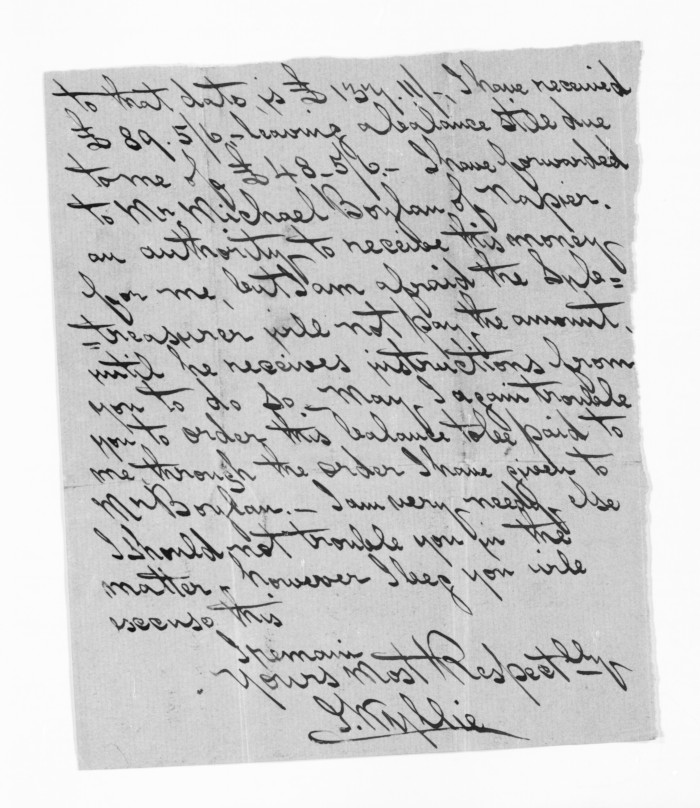 to that date, is £137.11/- I have received
£89.5/6, leaving a balance still due
to me of £48-5/6.- I have forwarded
to Mr. Michael Boylan of Napier.
an authority to receive this money
for me, but I am afraid the Sub=
=treasurer will not pay, the amount,
until he receives instructions from
you to do so - May I again trouble
you to order this balance to be paid to
me, through the order I have given to
Mr Boylan. - I am very needy, else
I should not trouble you in the
matter - however I beg you will
excuse this
I remain
Yours most Respectlly